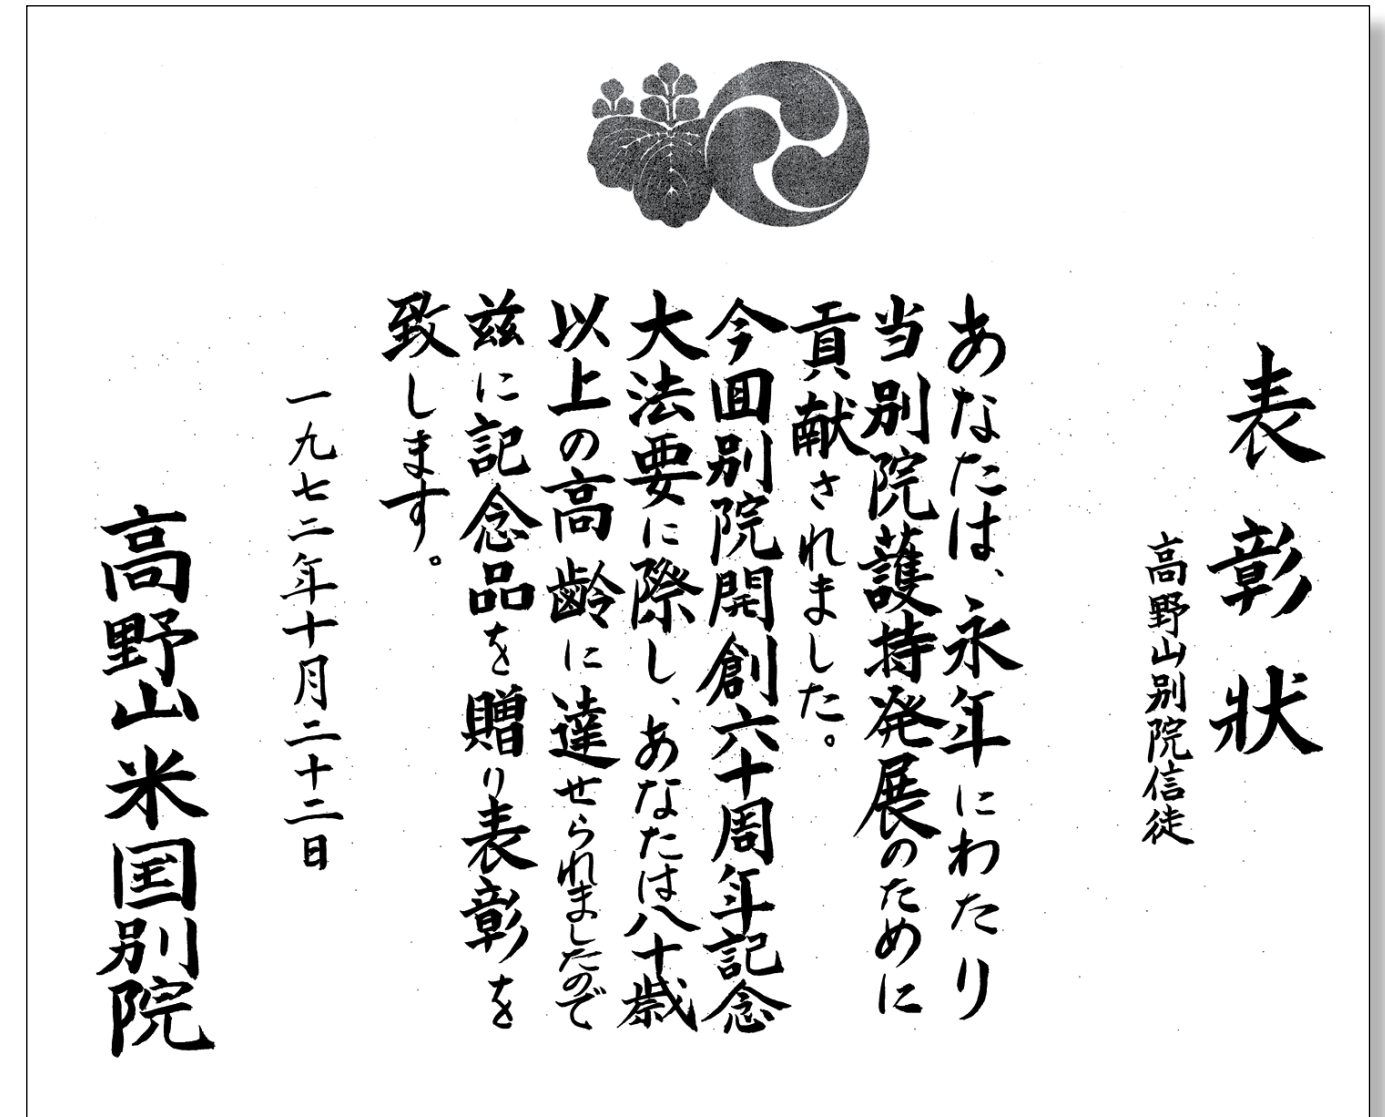 表彰状
高野山別院信徒
あなたは、永年にわたり
当別院護持発展のために
貢献されました。
今回別院開創六十周年記念
大法要に際し、あなたは八十歳
以上の高齢に達せられましたので
茲に記念品を贈り表彰を
致します。
一九七二年十月二十二日
高野山米国別院